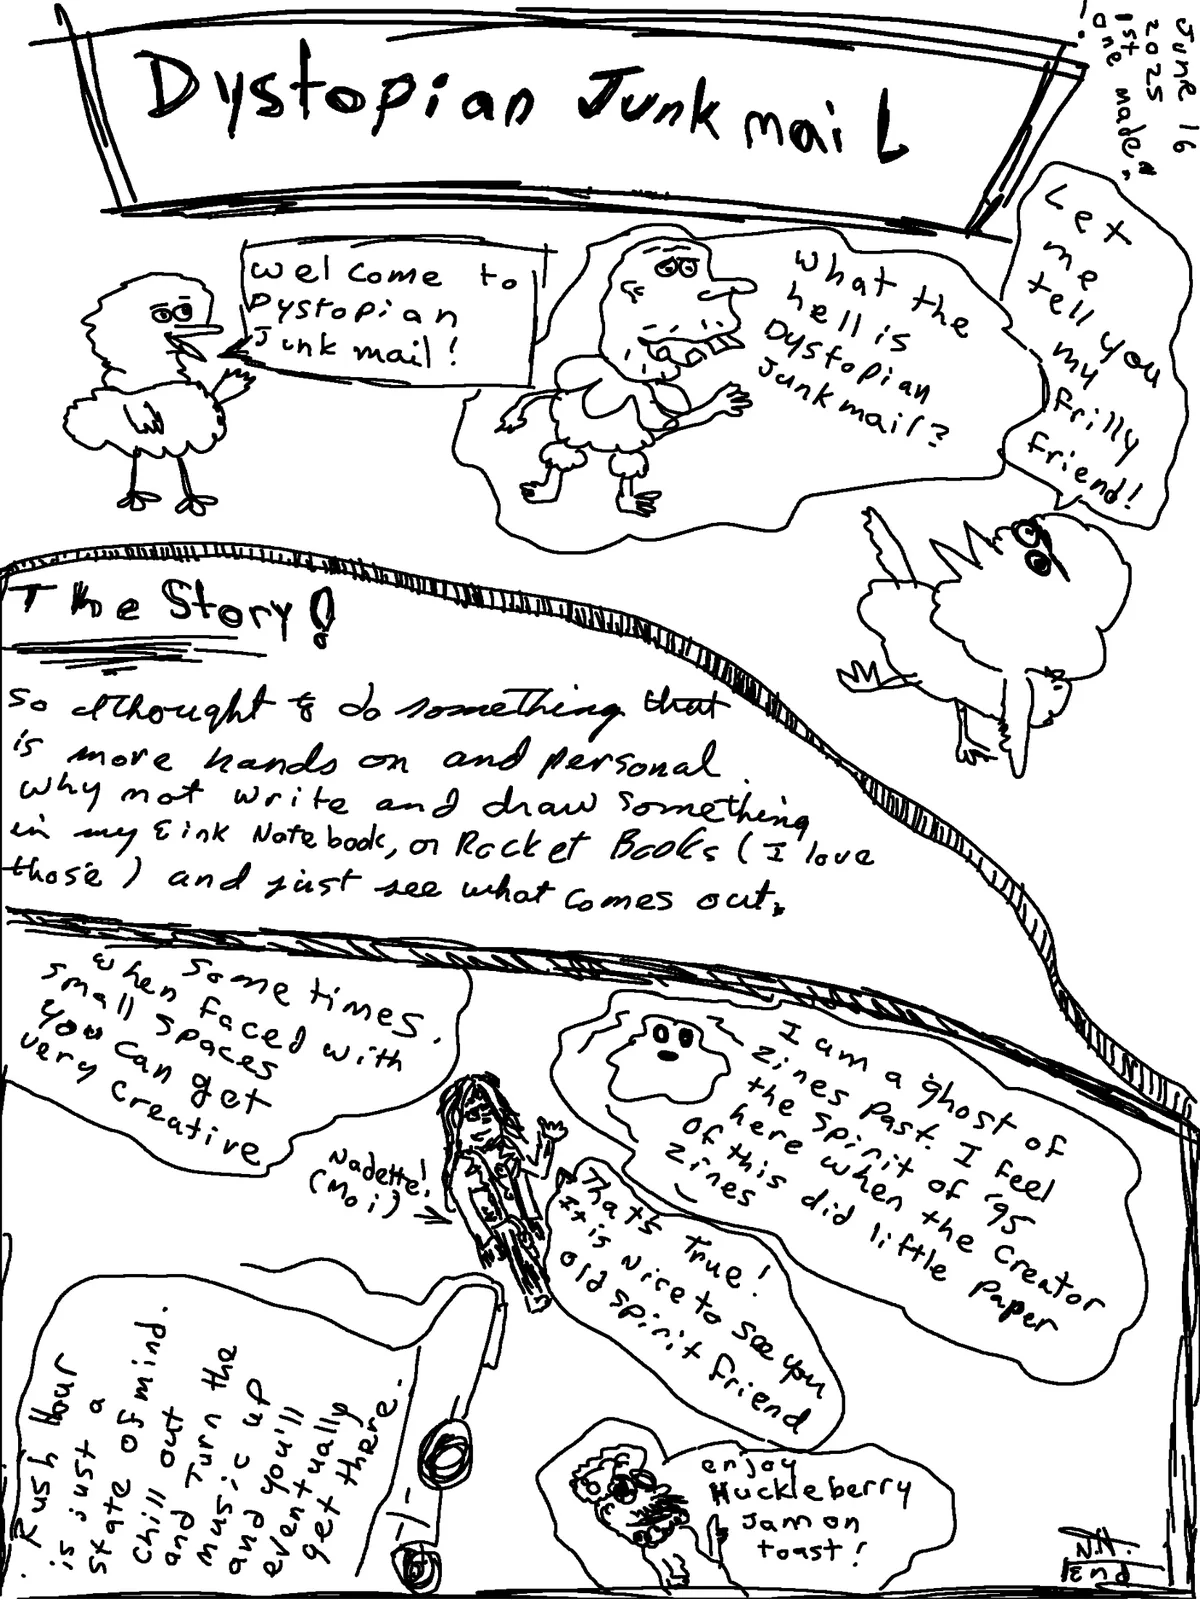 Dystopian Junk mail
June 16
2025
1st
one made!
Welcome to
Dystopian
Junk mail!
What the
hell is
Dystopian
Junk mail?
Let
me
tell you
my
frilly
friend!
The Story!
So I thought to do something that
is more hands on and personal.
why not write and draw something
in my Eink Notebook, or Rocket Books (I love
those) and just see what comes out.
Sometimes.
when faced with
small spaces
you can get
very creative
Nadette!
(Moi)
I am a ghost of
zines past. I feel
the spirit of '95
here when the creator
of this did little paper
zines
That's True!
It is nice to see you
old spirit friend
Rush Hour
is just a
state of mind.
chill out
and turn the
music up
and you'll
eventually
get there.
enjoy
Huckleberry
Jam on
toast!
N.H.
End